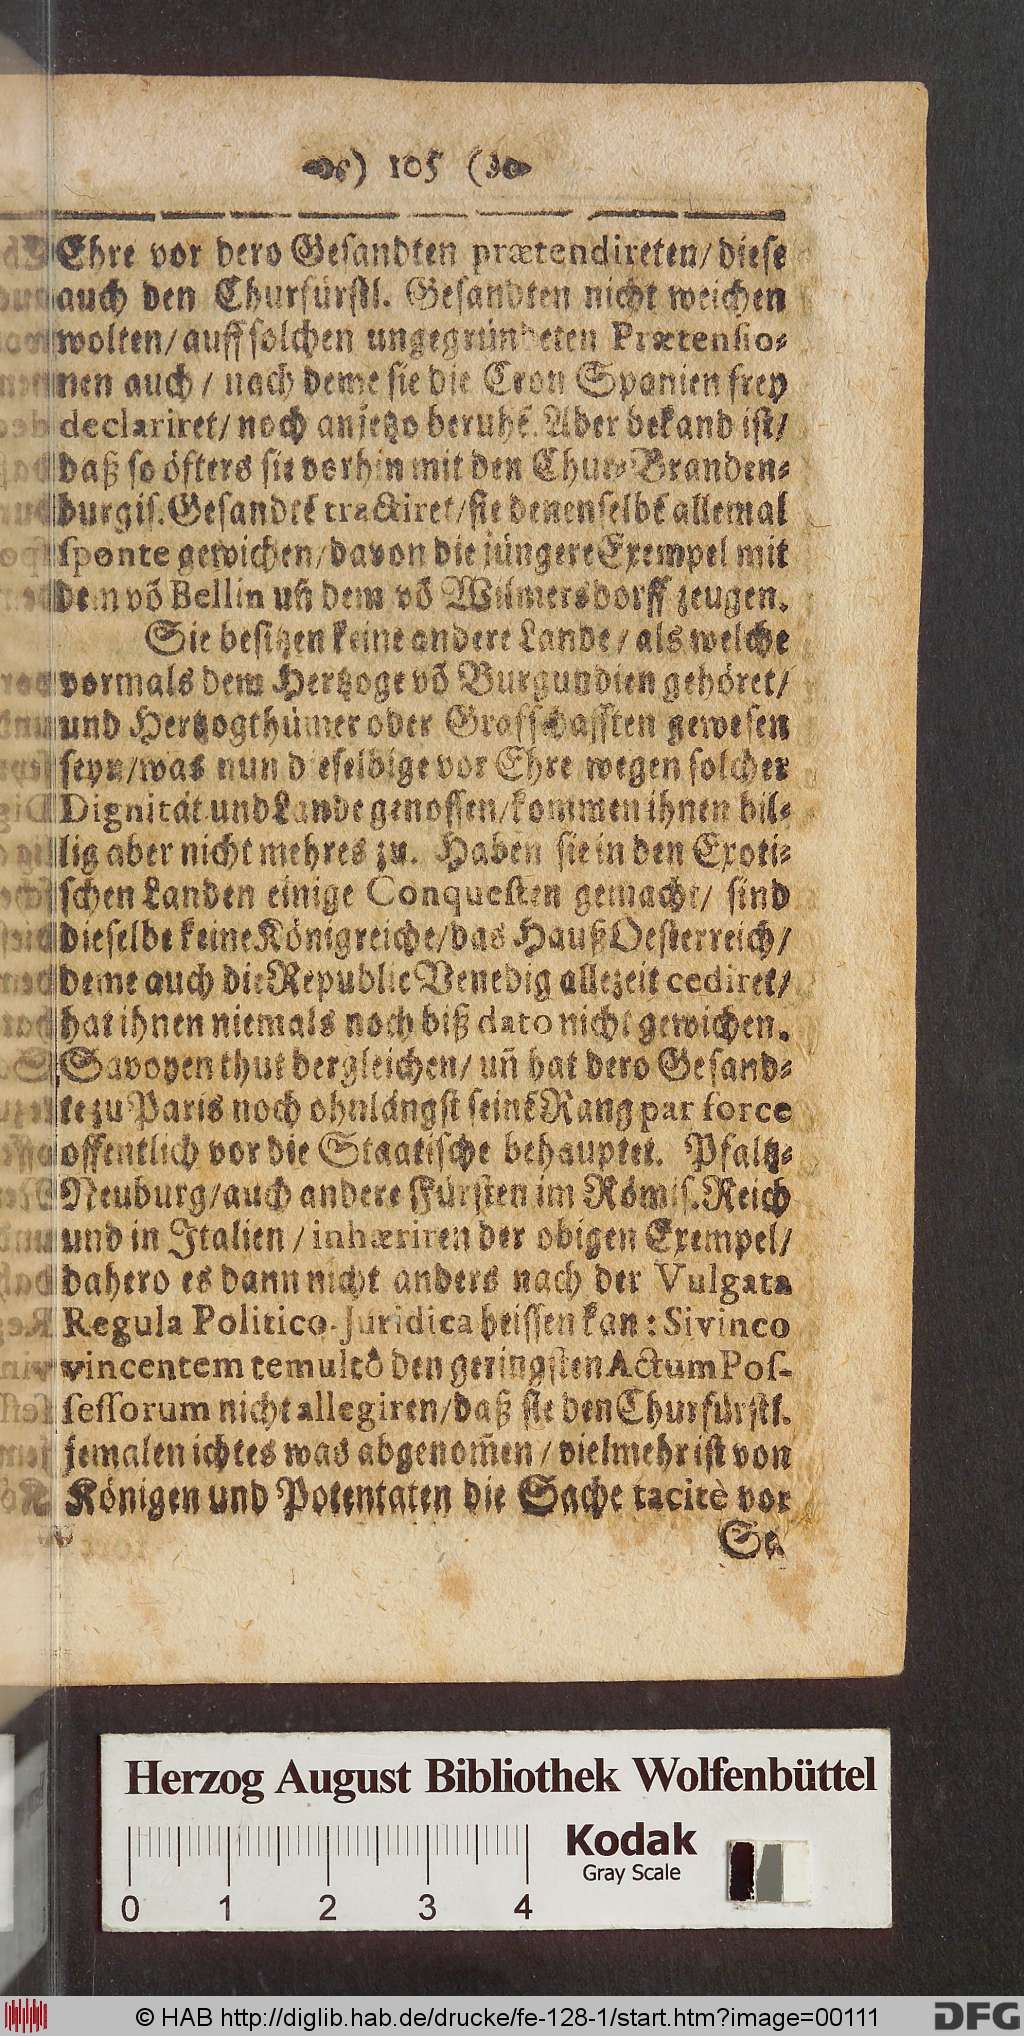 ) 105 (
Ehre vor dero Gesandten prætendireten/ diese
auch den Churfürstl. Gesandten nicht weichen
wolten/ auff solchen ungegründeten Prætensio-
nen auch / nach deme sie die Cron Spanien frey
declariret/ noch anjetzo beruhē. Aber bekand ist/
daß so öfters sie vorhin mit den Chur-Branden-
burgis. Gesandtē tractiret/ sie denenselbē allemal
sponte gewichen/ davon die jüngere Exempel mit
dem võ Bellin uñ dem võ Wilmersdorff zeugen.
Sie besitzen keine andere Lande / als welche
vormals dem Hertzoge võ Burgundien gehöret/
und Hertzogthümer oder Graffschafften gewesen
seyn/ was nun dieselbige vor Ehre wegen solcher
Dignität und Lande genossen/ kommen ihnen bil-
lig aber nicht mehres zu. Haben sie in den Exoti-
schen Landen einige Conquesten gemacht/ sind
dieselbe keine Königreiche/ das Hauß Oesterreich/
deme auch die Republic Venedig allezeit cediret/
hat ihnen niemals noch biß dato nicht gewichen.
Savoyen thut dergleichen/ uñ hat dero Gesand-
te zu Paris noch ohnlängst seinē Rang par force
offentlich vor die Staatische behauptet. Pfaltz-
Neuburg/ auch andere Fürsten im Römis. Reich
und in Italien / inhæriren der obigen Exempel/
dahero es dann nicht anders nach der Vulgata
Regula Politico-Juridica heissen kan: Si vinco
vincentem te multò den geringsten Actum Pos-
sessorum nicht allegiren/ daß sie den Churfürstl.
jemalen ichtes was abgenom̃en / vielmehr ist von
Königen und Potentaten die Sache tacitè vor
Se.
Herzog August Bibliothek Wolfenbüttel
0 1 2 3 4
Kodak
Gray Scale
© HAB http://diglib.hab.de/drucke/fe-128-1/start.htm?image=00111
DFG